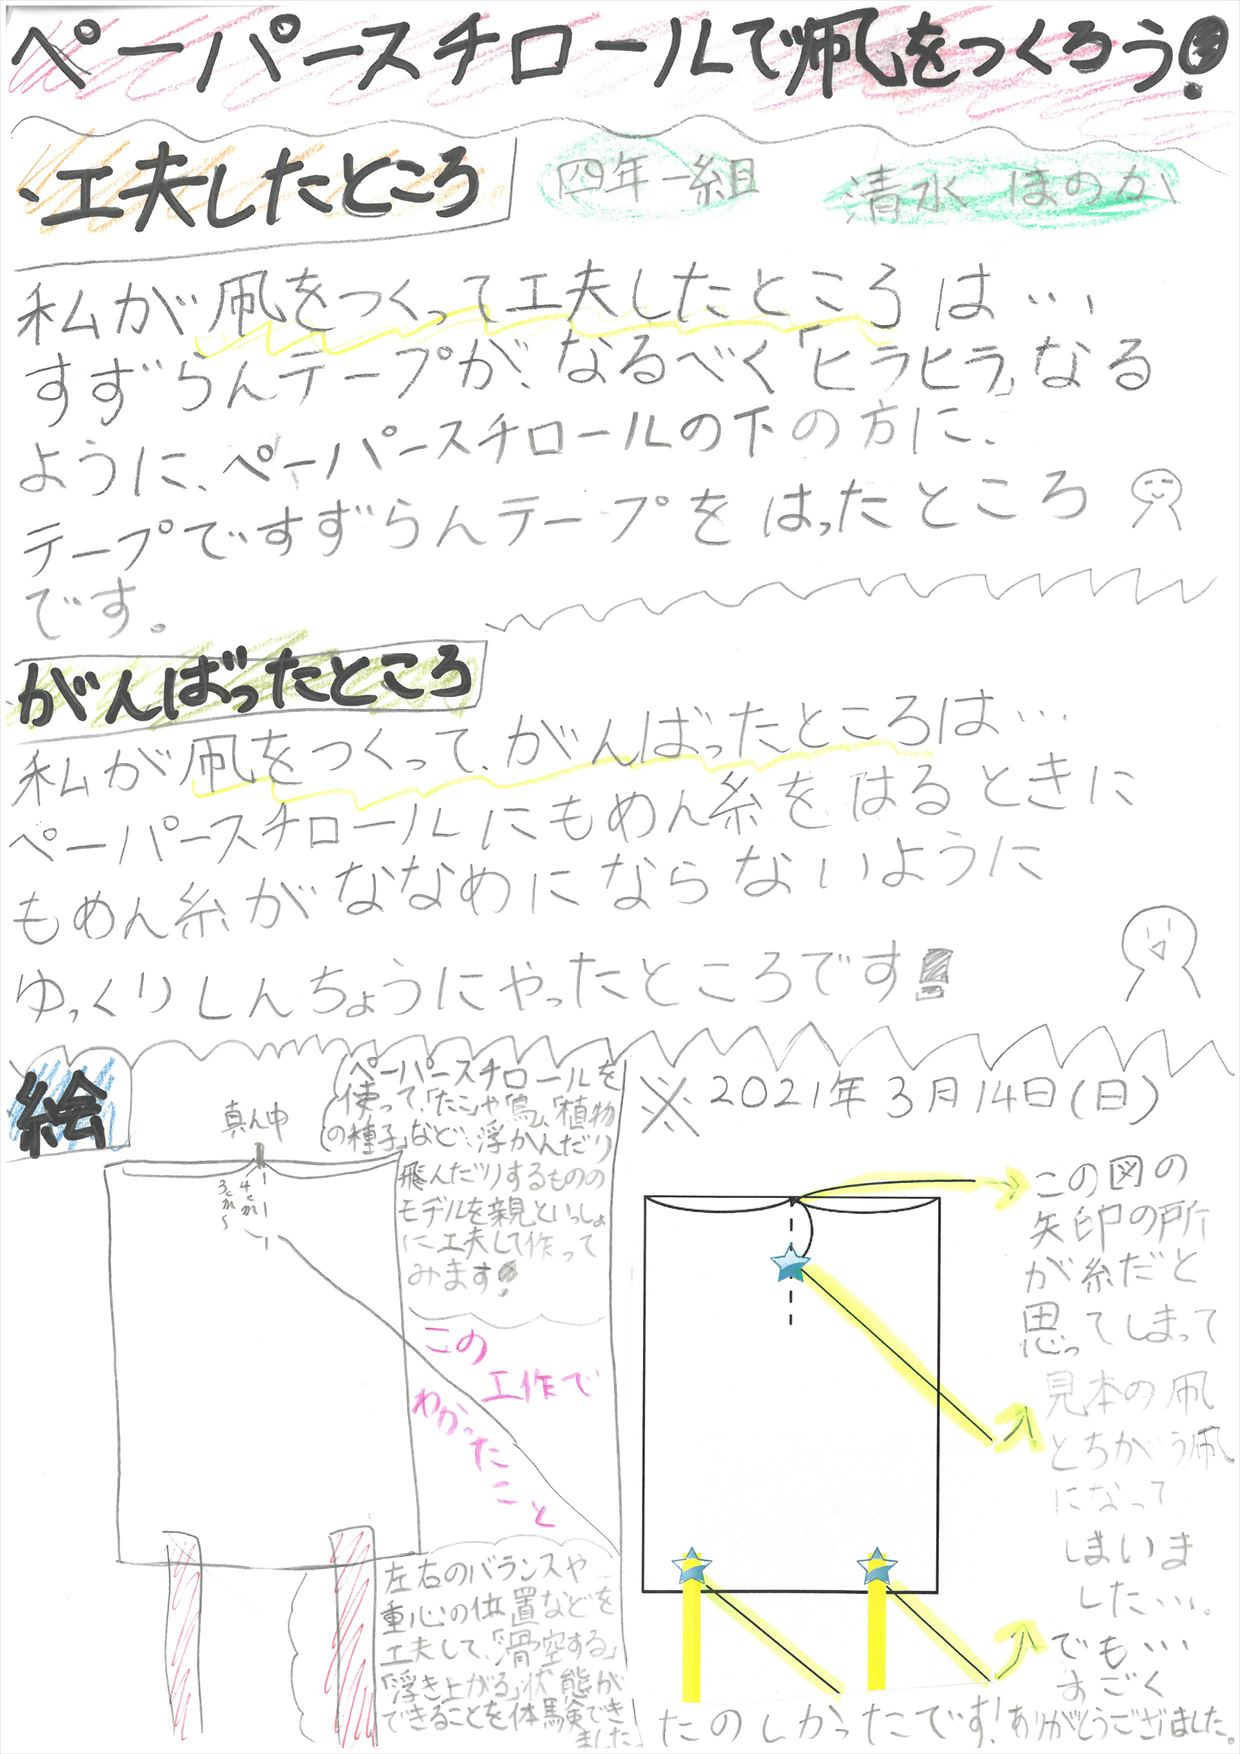 ペーパースチロールで凧をつくろう!
・工夫したところ
四年一組 清水 ほのか
私が凧をつくって工夫したところは…
すずらんテープが、なるべく「ヒラヒラ」なる
ように、ペーパースチロールの下の方に、
テープですずらんテープをはったところ
です。
がんばったところ
私が凧をつくって、がんばったところは…
ペーパースチロールにもめん糸をはるときに
もめん糸がななめにならないように
ゆっくりしんちょうにやったところです!
絵
真ん中
3cmから
4cm
ペーパースチロールを
使って、「たこ」や「鳥」、「植物
の種子」など、浮かんだり
飛んだりするものの
モデルを親といっしょ
に工夫して作って
みます!
この
工作で
わかったこと
左右のバランスや
重心の位置などを
工夫して、「滑空する」
「浮き上がる」状態が
できることを体験でき
ました
※2021年3月14日(日)
この図の
矢印の所
が糸だと
思ってしまって
見本の凧
とちがう凧
になって
しまいま
した…。
でも…
すごく
たのしかったです!ありがとうございました。